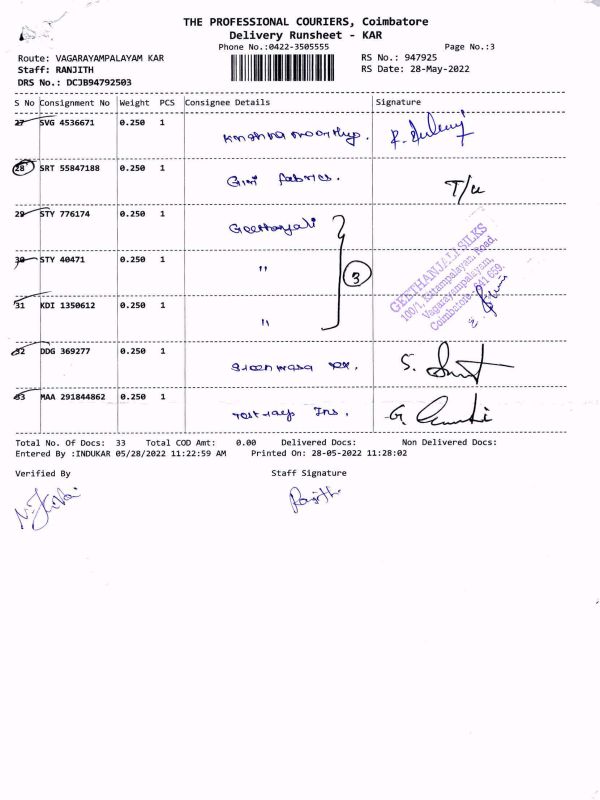 THE PROFESSIONAL COURIERS, Coimbatore
Delivery Runsheet - KAR
Phone No.:0422-3505555 Page No.:3
Route: VAGARAYAMPALAYAM KAR RS No.: 947925
Staff: RANJITH RS Date: 28-May-2022
DRS No.: DCJB94792503
S No Consignment No Weight PCS Consignee Details Signature
27 SVG 4536671 0.250 1 Krishna moorthy.
28 SRT 55847188 0.250 1 Giri fabrics. T/u
29 STY 776174 0.250 1 Geethanjali
30 STY 40471 0.250 1 "
3
31 KDI 1350612 0.250 1 "
GEETHANJALI SILKS
100/1, Kattampalayam Road,
Vagarayampalayam,
Coimbatore - 641 659.
32 DDG 369277 0.250 1 S.
33 MAA 291844862 0.250 1 Ins. G.
Total No. Of Docs: 33 Total COD Amt: 0.00 Delivered Docs: Non Delivered Docs:
Entered By :INDUKAR 05/28/2022 11:22:59 AM Printed On: 28-05-2022 11:28:02
Verified By Staff Signature